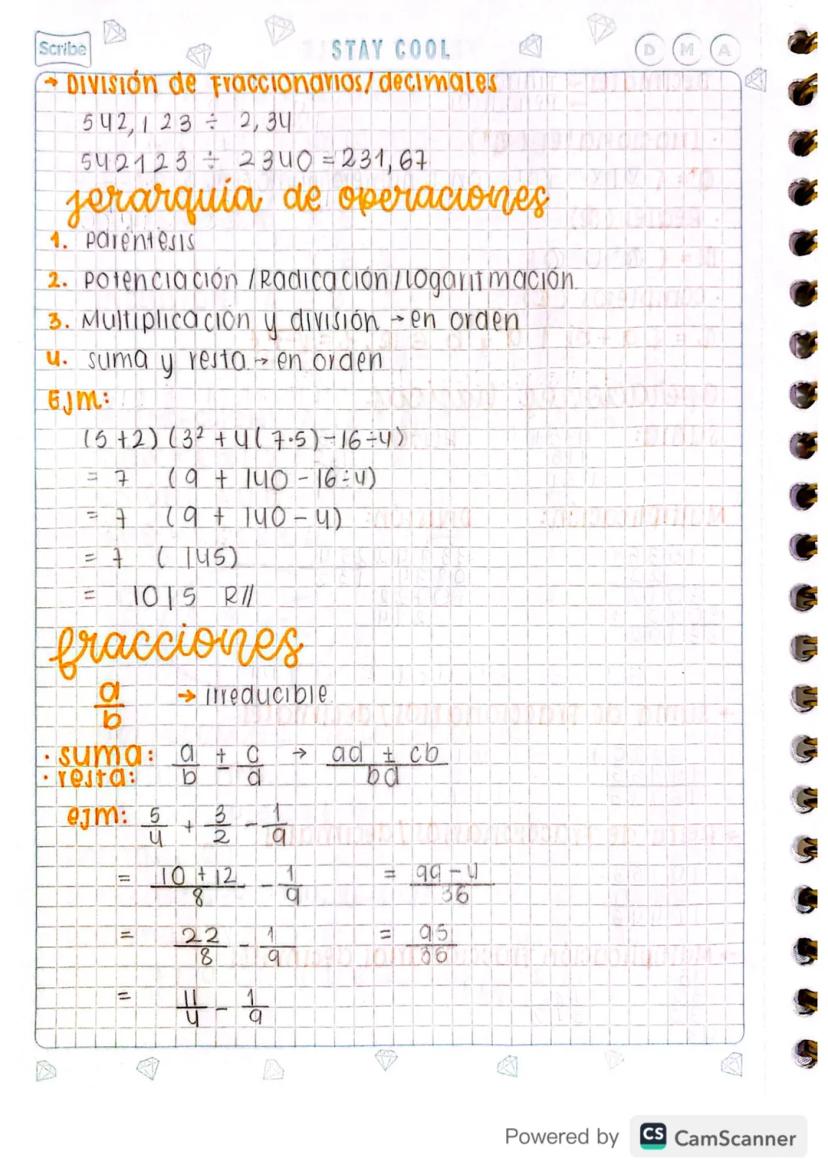 Scribe
STAY COOL
D M A
→ División de fraccionarios/decimales
542,123 ÷ 2,34
542123 ÷ 2340 = 231,67
jerarquía de operaciones
1. paréntesis
2. potenciación /Radicación/logaritmación
3. Multiplicación y división → en orden
4. suma y resta → en orden
Ejm:
(5+2)(3² + 4(7·5) - 16÷4)
= 7 (9 + 140 - 16÷4)
= 7 (9 + 140 - 4)
= 7 ( 145)
= 1015 R//
fracciones
a/b → irreducible
· suma: · resta: a/b ± c/d → ad ± cb / bd
ejm: 5/4 + 3/2 - 1/9
= 10+12/8 - 1/9 = 99-4/36
= 22/8 - 1/9 = 95/36
= 11/4 - 1/9
Powered by CS CamScanner